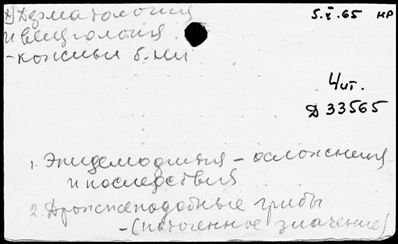 Дерматология
и венерология
- кожные б-ни
5.X.65 НР
4 ит.
Д 33565
1. Эпидемофития - осложнения
и последствия
2. Дрожжеподобные грибы
- (патогенное значение)